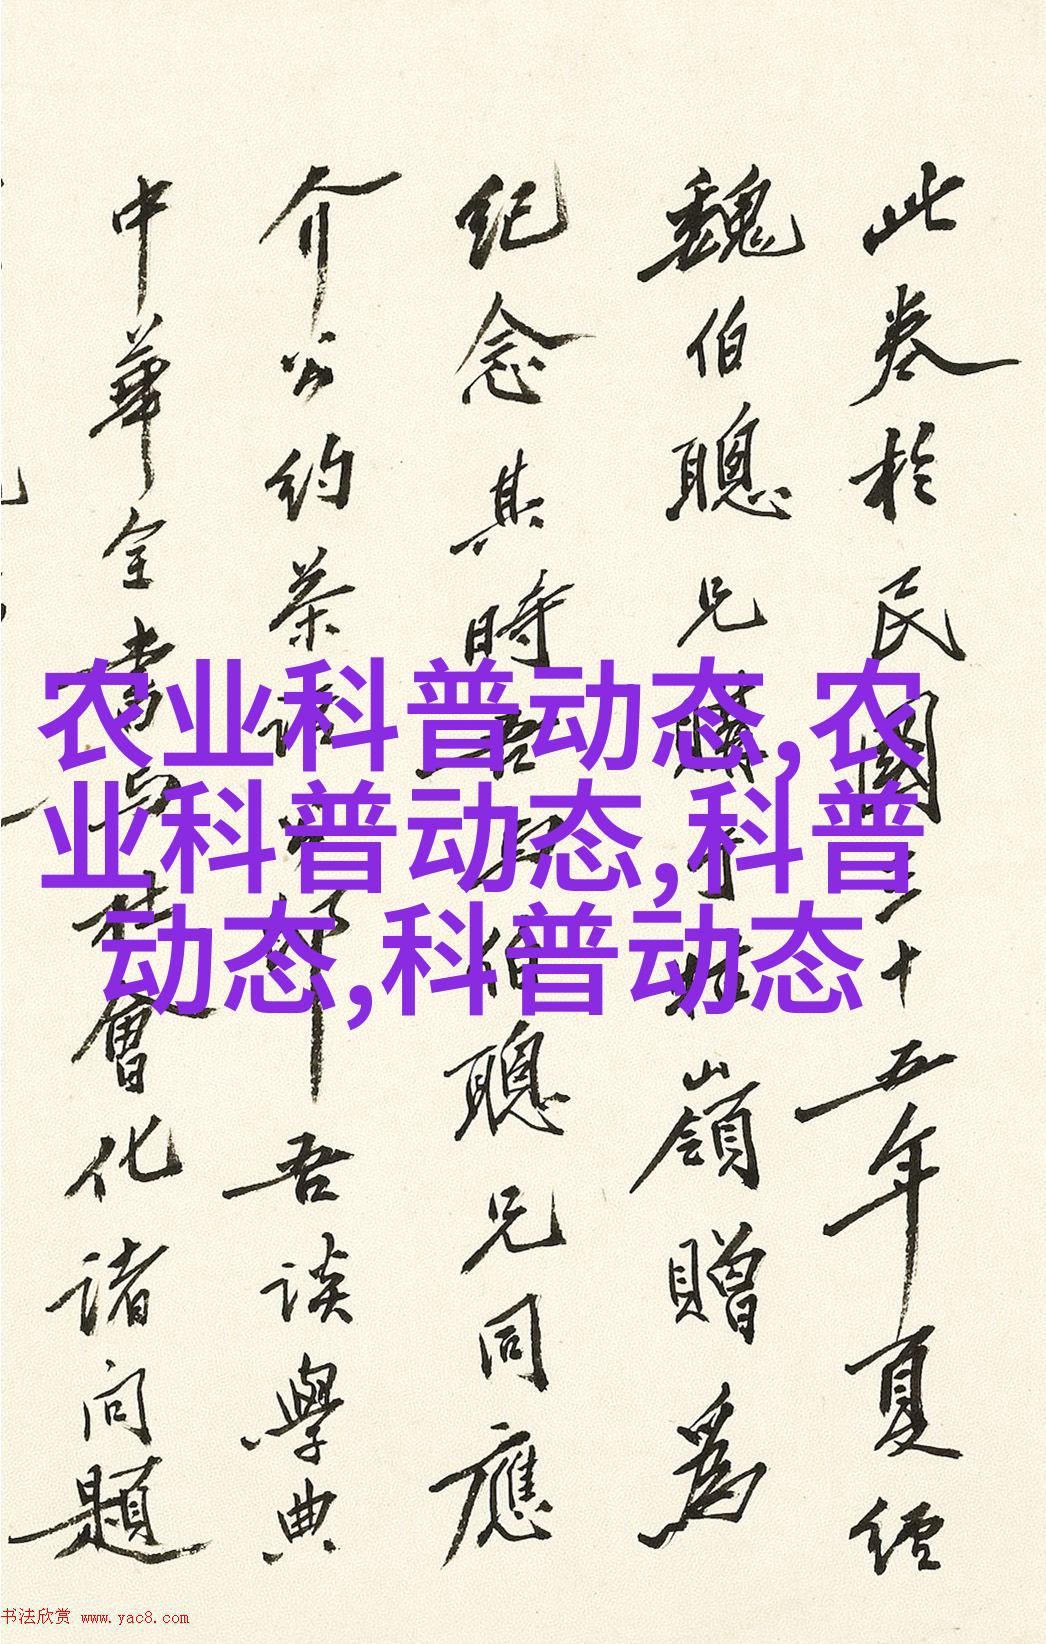 此卷於民國三十五年夏經
魏伯聰兄購于牯嶺贈為
紀念其時吾與伯聰兄同應
介公約茶話邸吾談學典
中華全書与社會化諸問題
农业科普动态,农
业科普动态,科普
动态,科普动态
书法欣赏 www.yac8.com